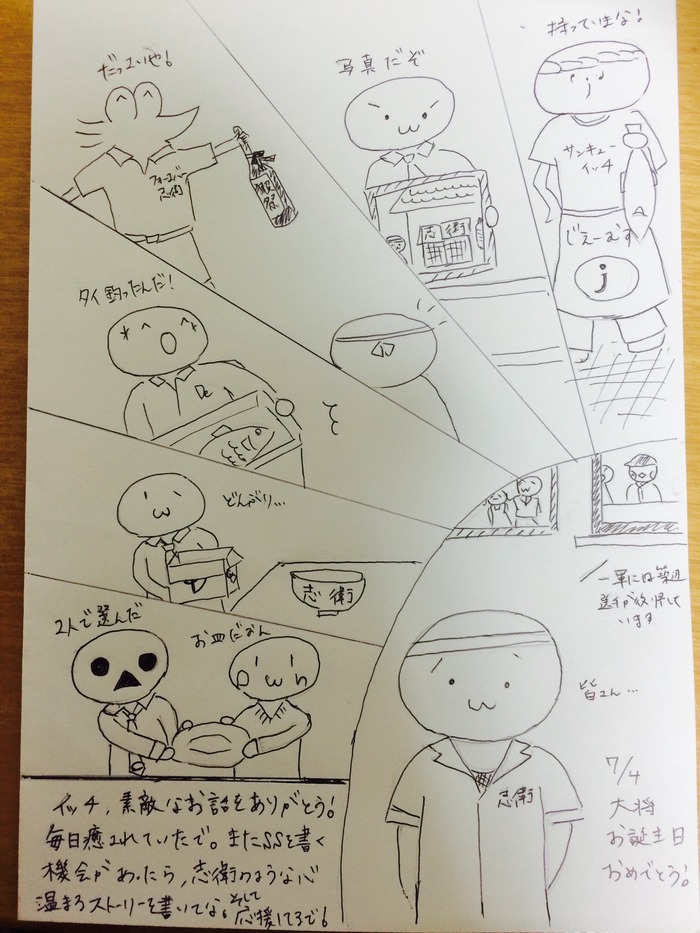 だっエいや!
写真だぞ
持っていきな!
フォーエバー
志衛
獺祭
志衛
サンキュー
イッチ
じぇーむす
j
タイ釣ったんだ!
どんぶり…
志衛
2人で選んだ
お皿だなん
一軍には築辺
選手が復帰して
います
皆エん…
志衛
7/4
大将
お誕生日
おめでとう!
イッチ、素敵なお話をありがとう!
毎日癒されていたで。またSSを書く
機会があったら、志衛のような心
温まるストーリーを書いてな。そして
応援してるで!